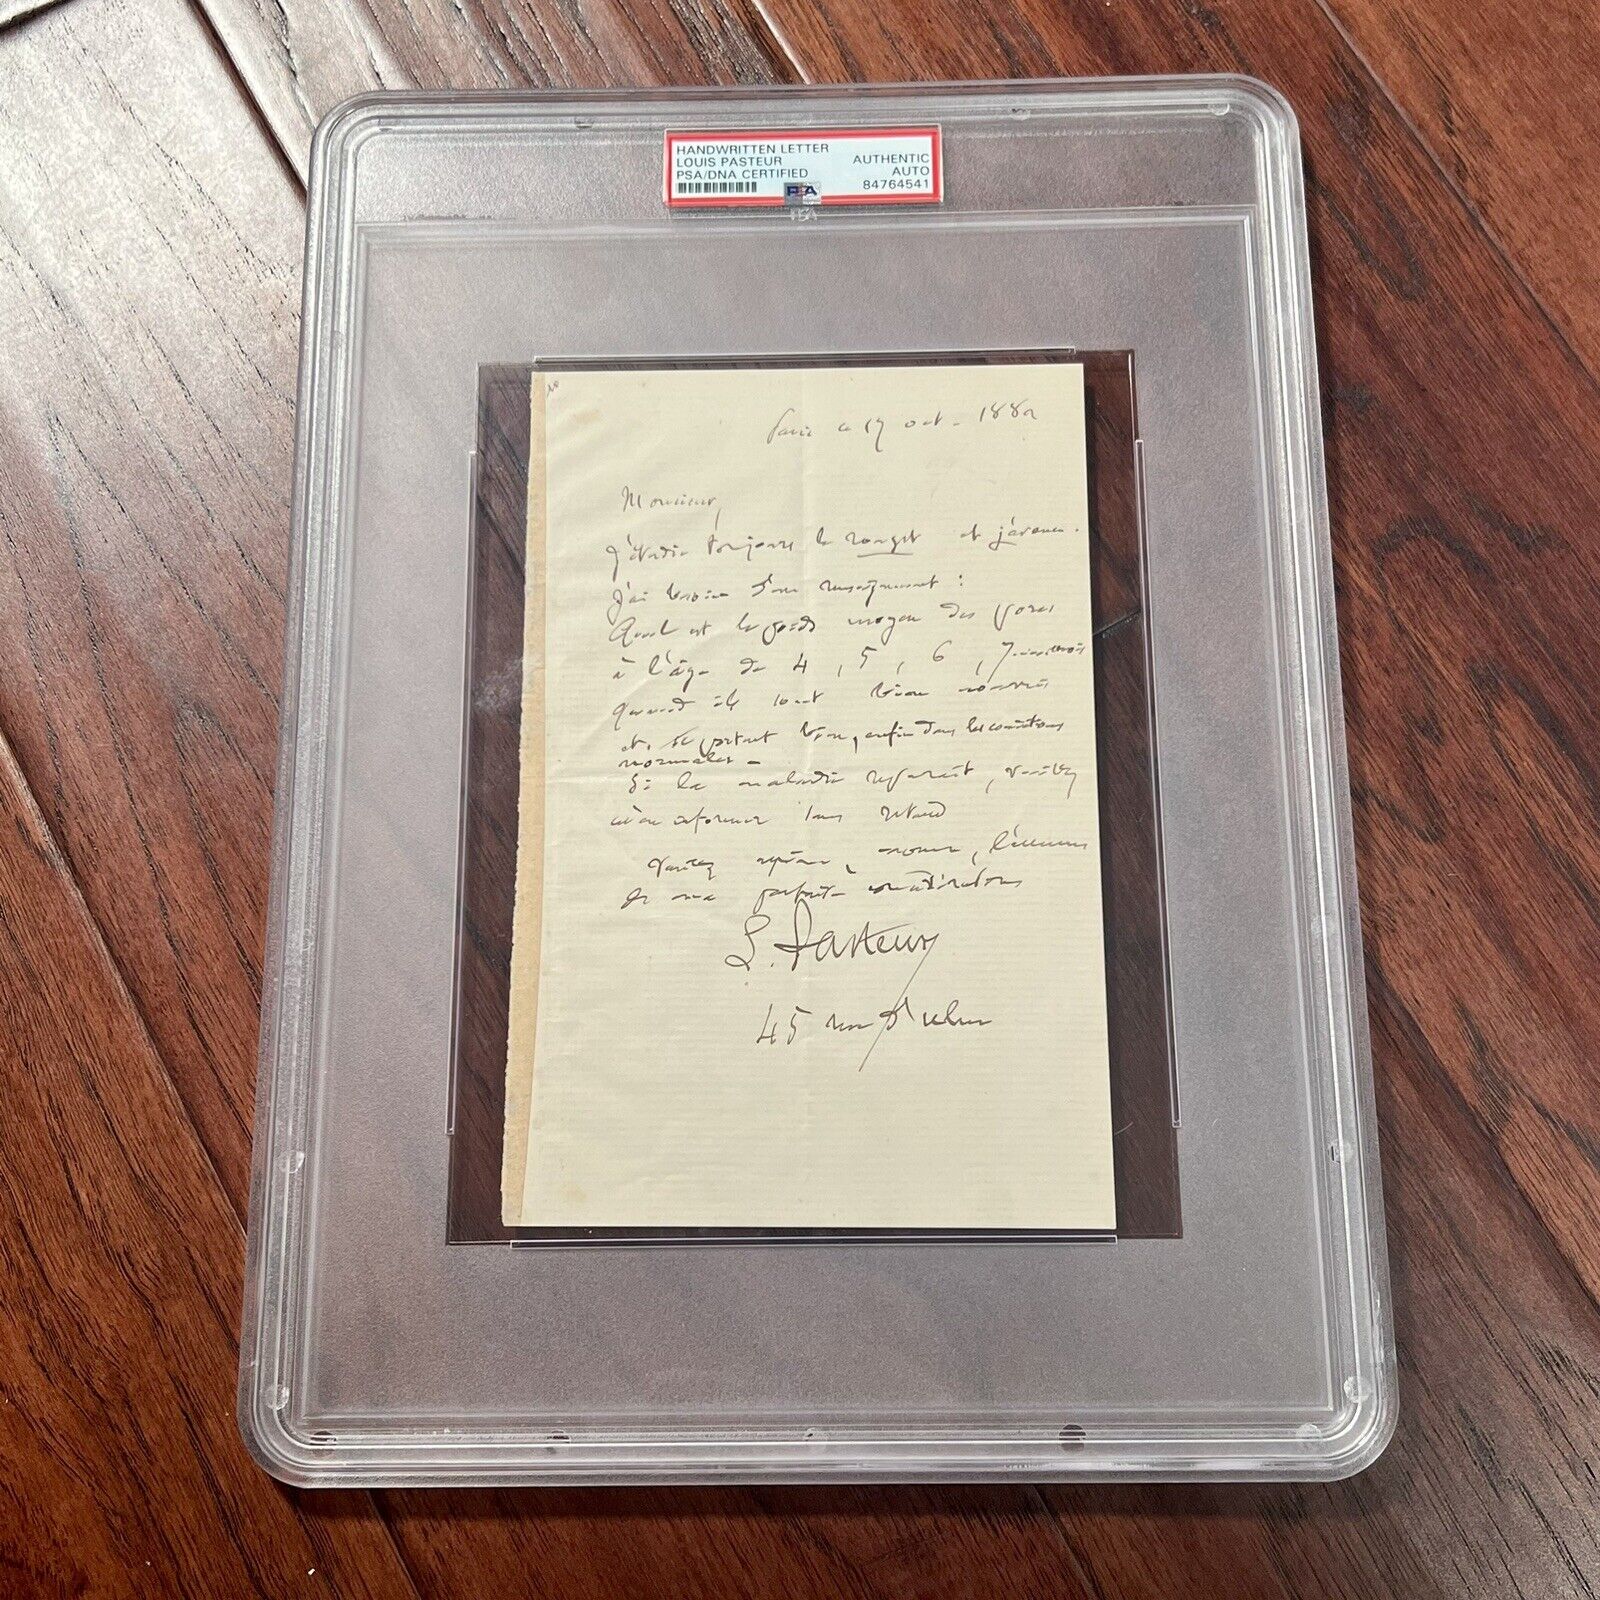 HANDWRITTEN LETTER
LOUIS PASTEUR
PSA/DNA CERTIFIED
AUTHENTIC
AUTO
84764541
PSA
Paris ce 17 oct. 1882
Monsieur,
J'étudie toujours le rouget et j'avance.
J'ai besoin d'un renseignement :
Quel est le poids moyen des porcs
à l'âge de 4, 5, 6, 7
quand ils sont bien nourris
et se portent bien, enfin dans les conditions
normales -
Si la maladie reparaît, veuillez
m'en informer sans retard
Veuillez agréer, monsieur, l'assurance
de ma parfaite considération
L. Pasteur
45 rue d'Ulm